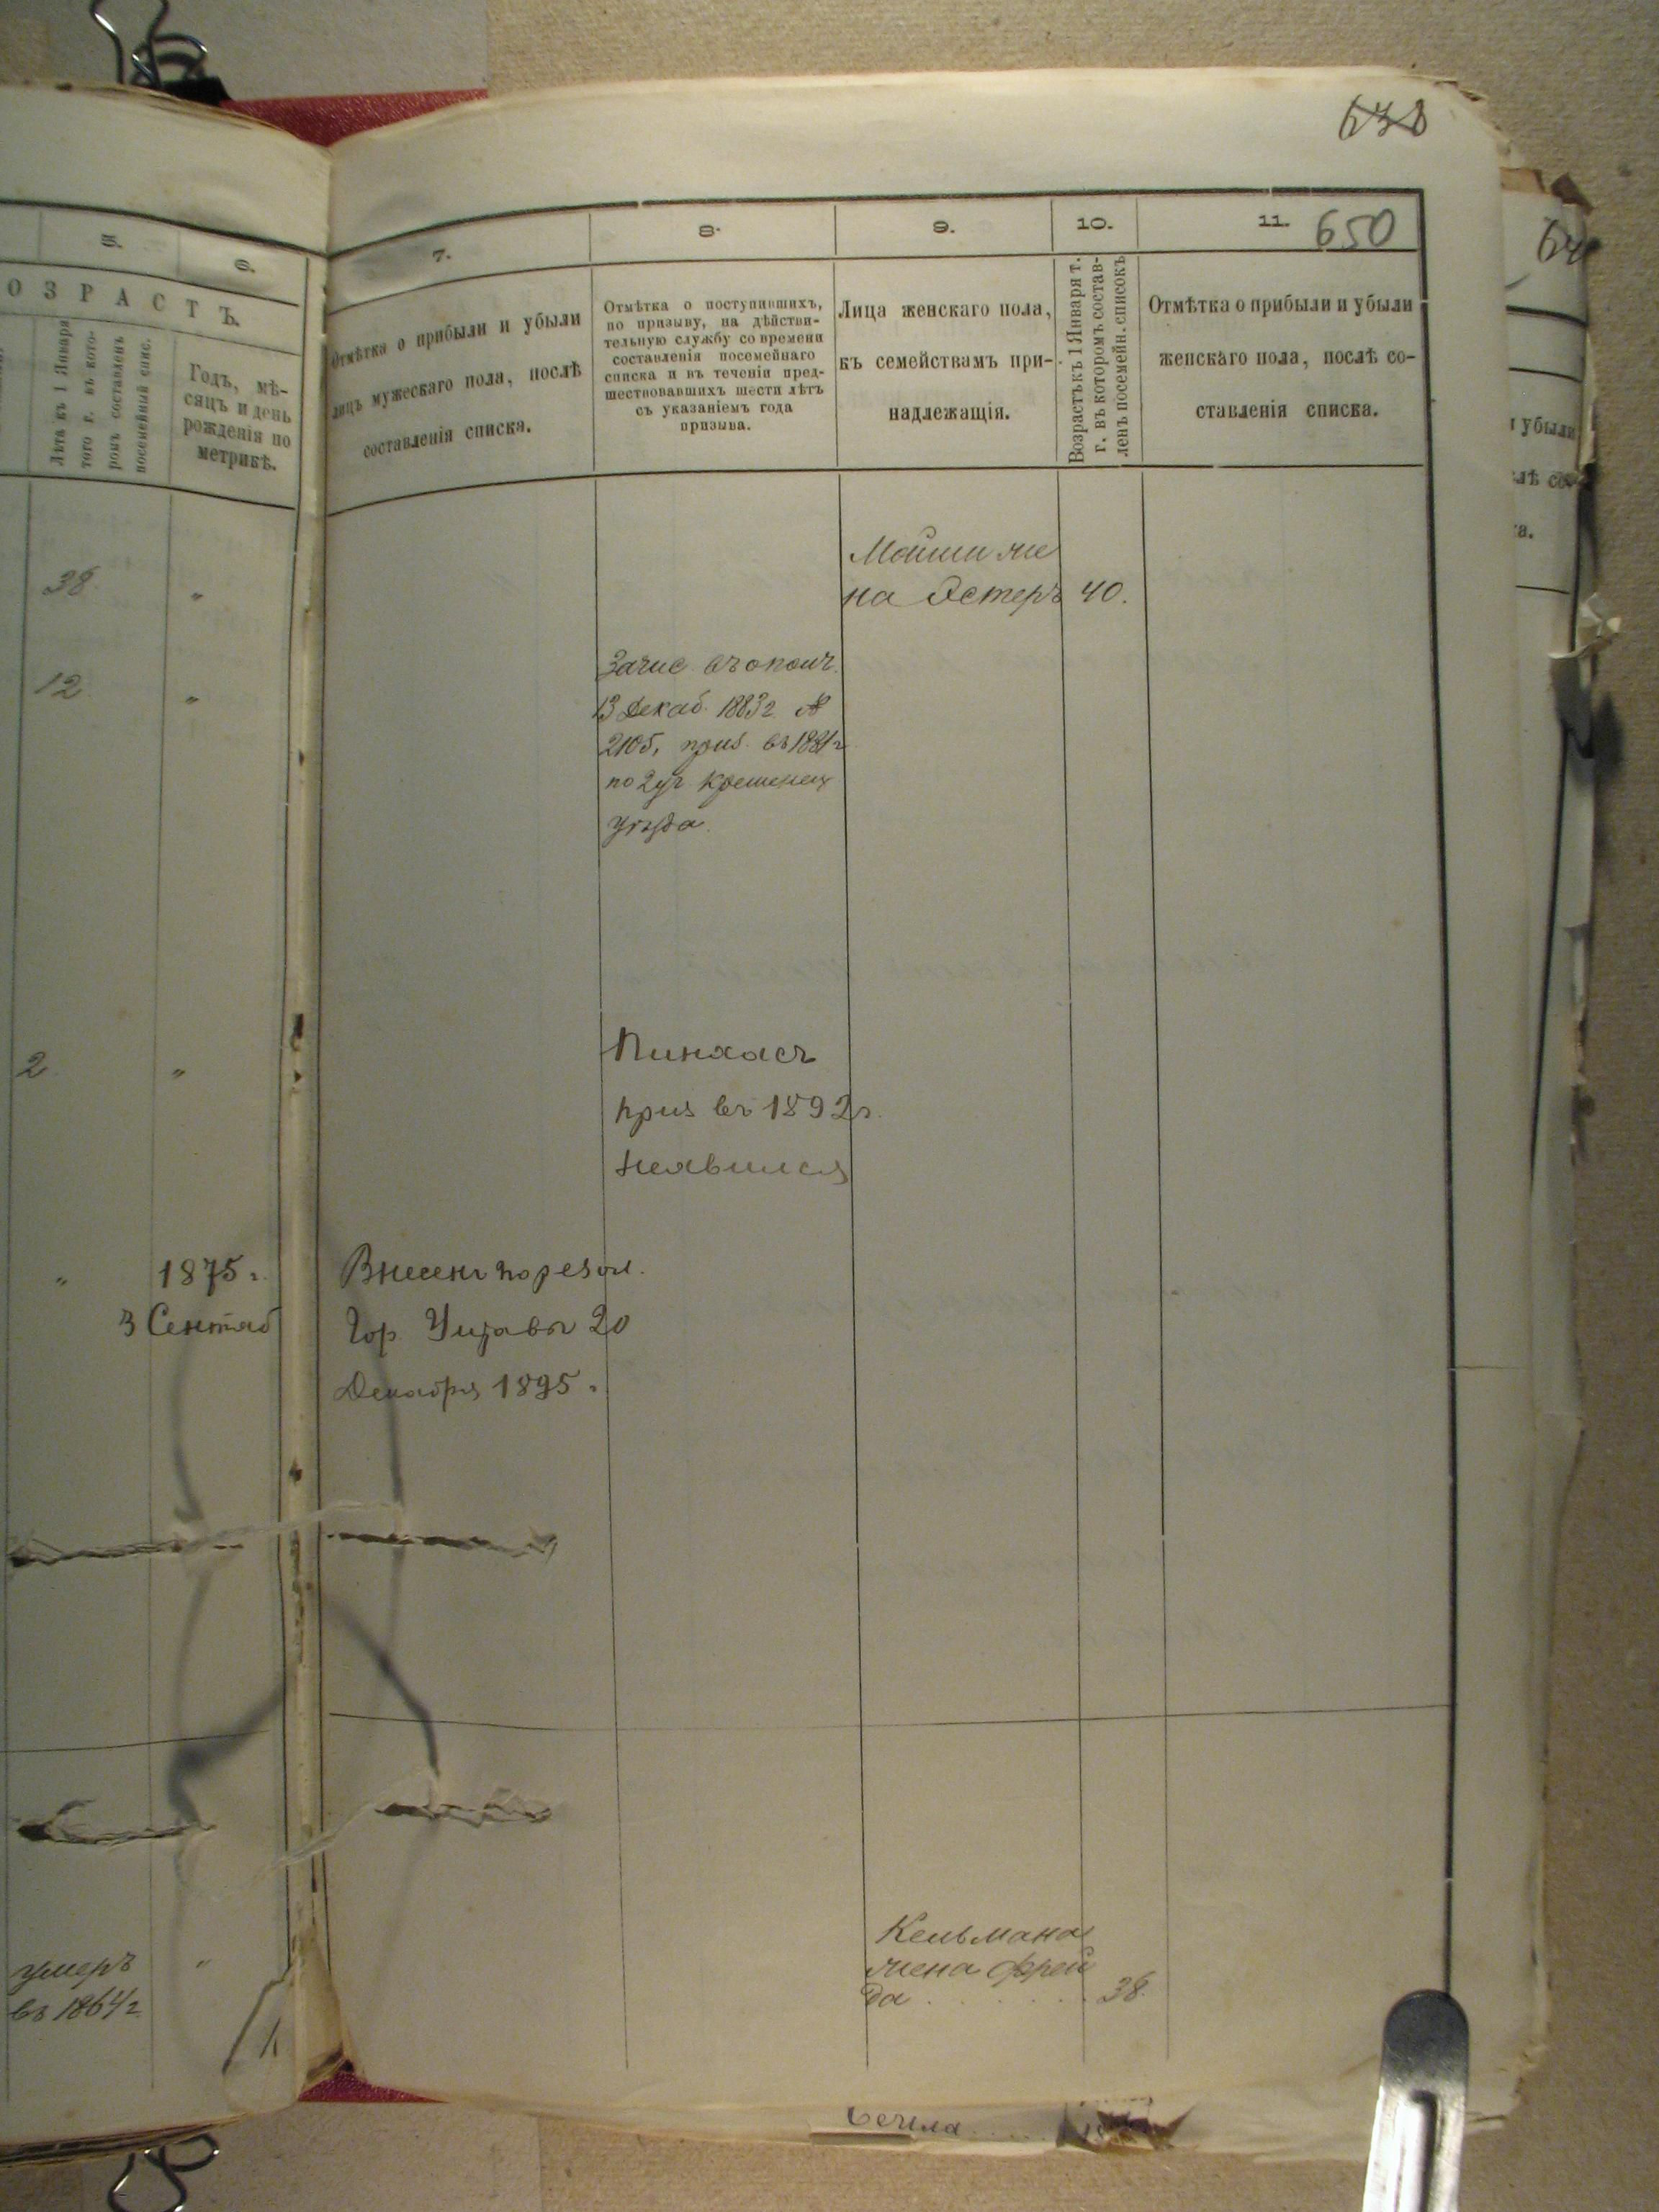 638
650
5.
6.
ОЗРАСТЪ.
Лѣта къ 1 Января
того г. въ кото-
ромъ составленъ
посемейный спис.
Годъ, мѣ-
сяцъ и день
рожденія по
метрикѣ.
7.
8.
9.
10.
11.
Отмѣтка о прибыли и убыли
лицъ мужескаго пола, послѣ
составленія списка.
Отмѣтка о поступившихъ,
по призыву, на дѣйстви-
тельную службу со времени
составленія посемейнаго
списка и въ теченіи пред-
шествовавшихъ шести лѣтъ
съ указаніемъ года
призыва.
Лица женскаго пола,
къ семействамъ при-
надлежащія.
Возрастъ къ 1 Января т.
г. въ которомъ состав-
ленъ посемейн. списокъ
Отмѣтка о прибыли и убыли
женскаго пола, послѣ со-
ставленія списка.
убыли
а.
38 "
Мошки же
на Эстеръ 40.
12 "
Зачис. въ ополч.
13 Декаб. 1883 г. №
2105, приз. въ 1881 г
по 2 уч. Кременец
уѣзда.
2 "
Пинхасъ
приз въ 1892 г.
неявился
" 1875 г.
3 Сентяб
Внесенъ по резол.
Гор. Управы 20
Декабря 1895 г.
умеръ "
въ 1864 г.
Кельмана
жена Фрей
да . . . . . . 38.